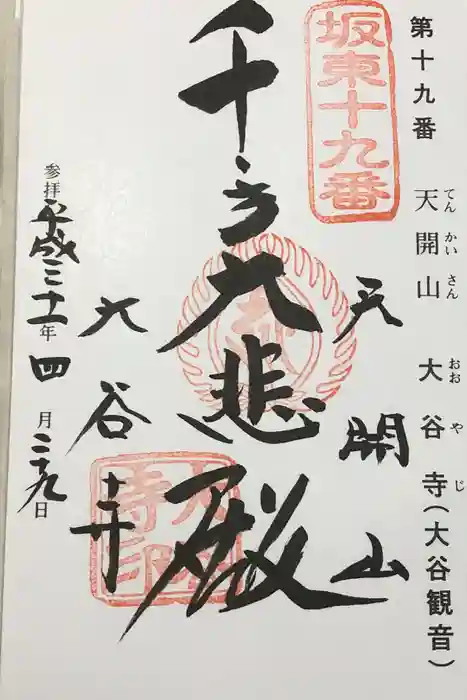 第十九番 天開山 大谷寺(大谷観音)
てんかいさん おおやじ
坂東十九番
天開山
千手大悲殿
大谷寺
参拝 平成三十一年四月二十九日